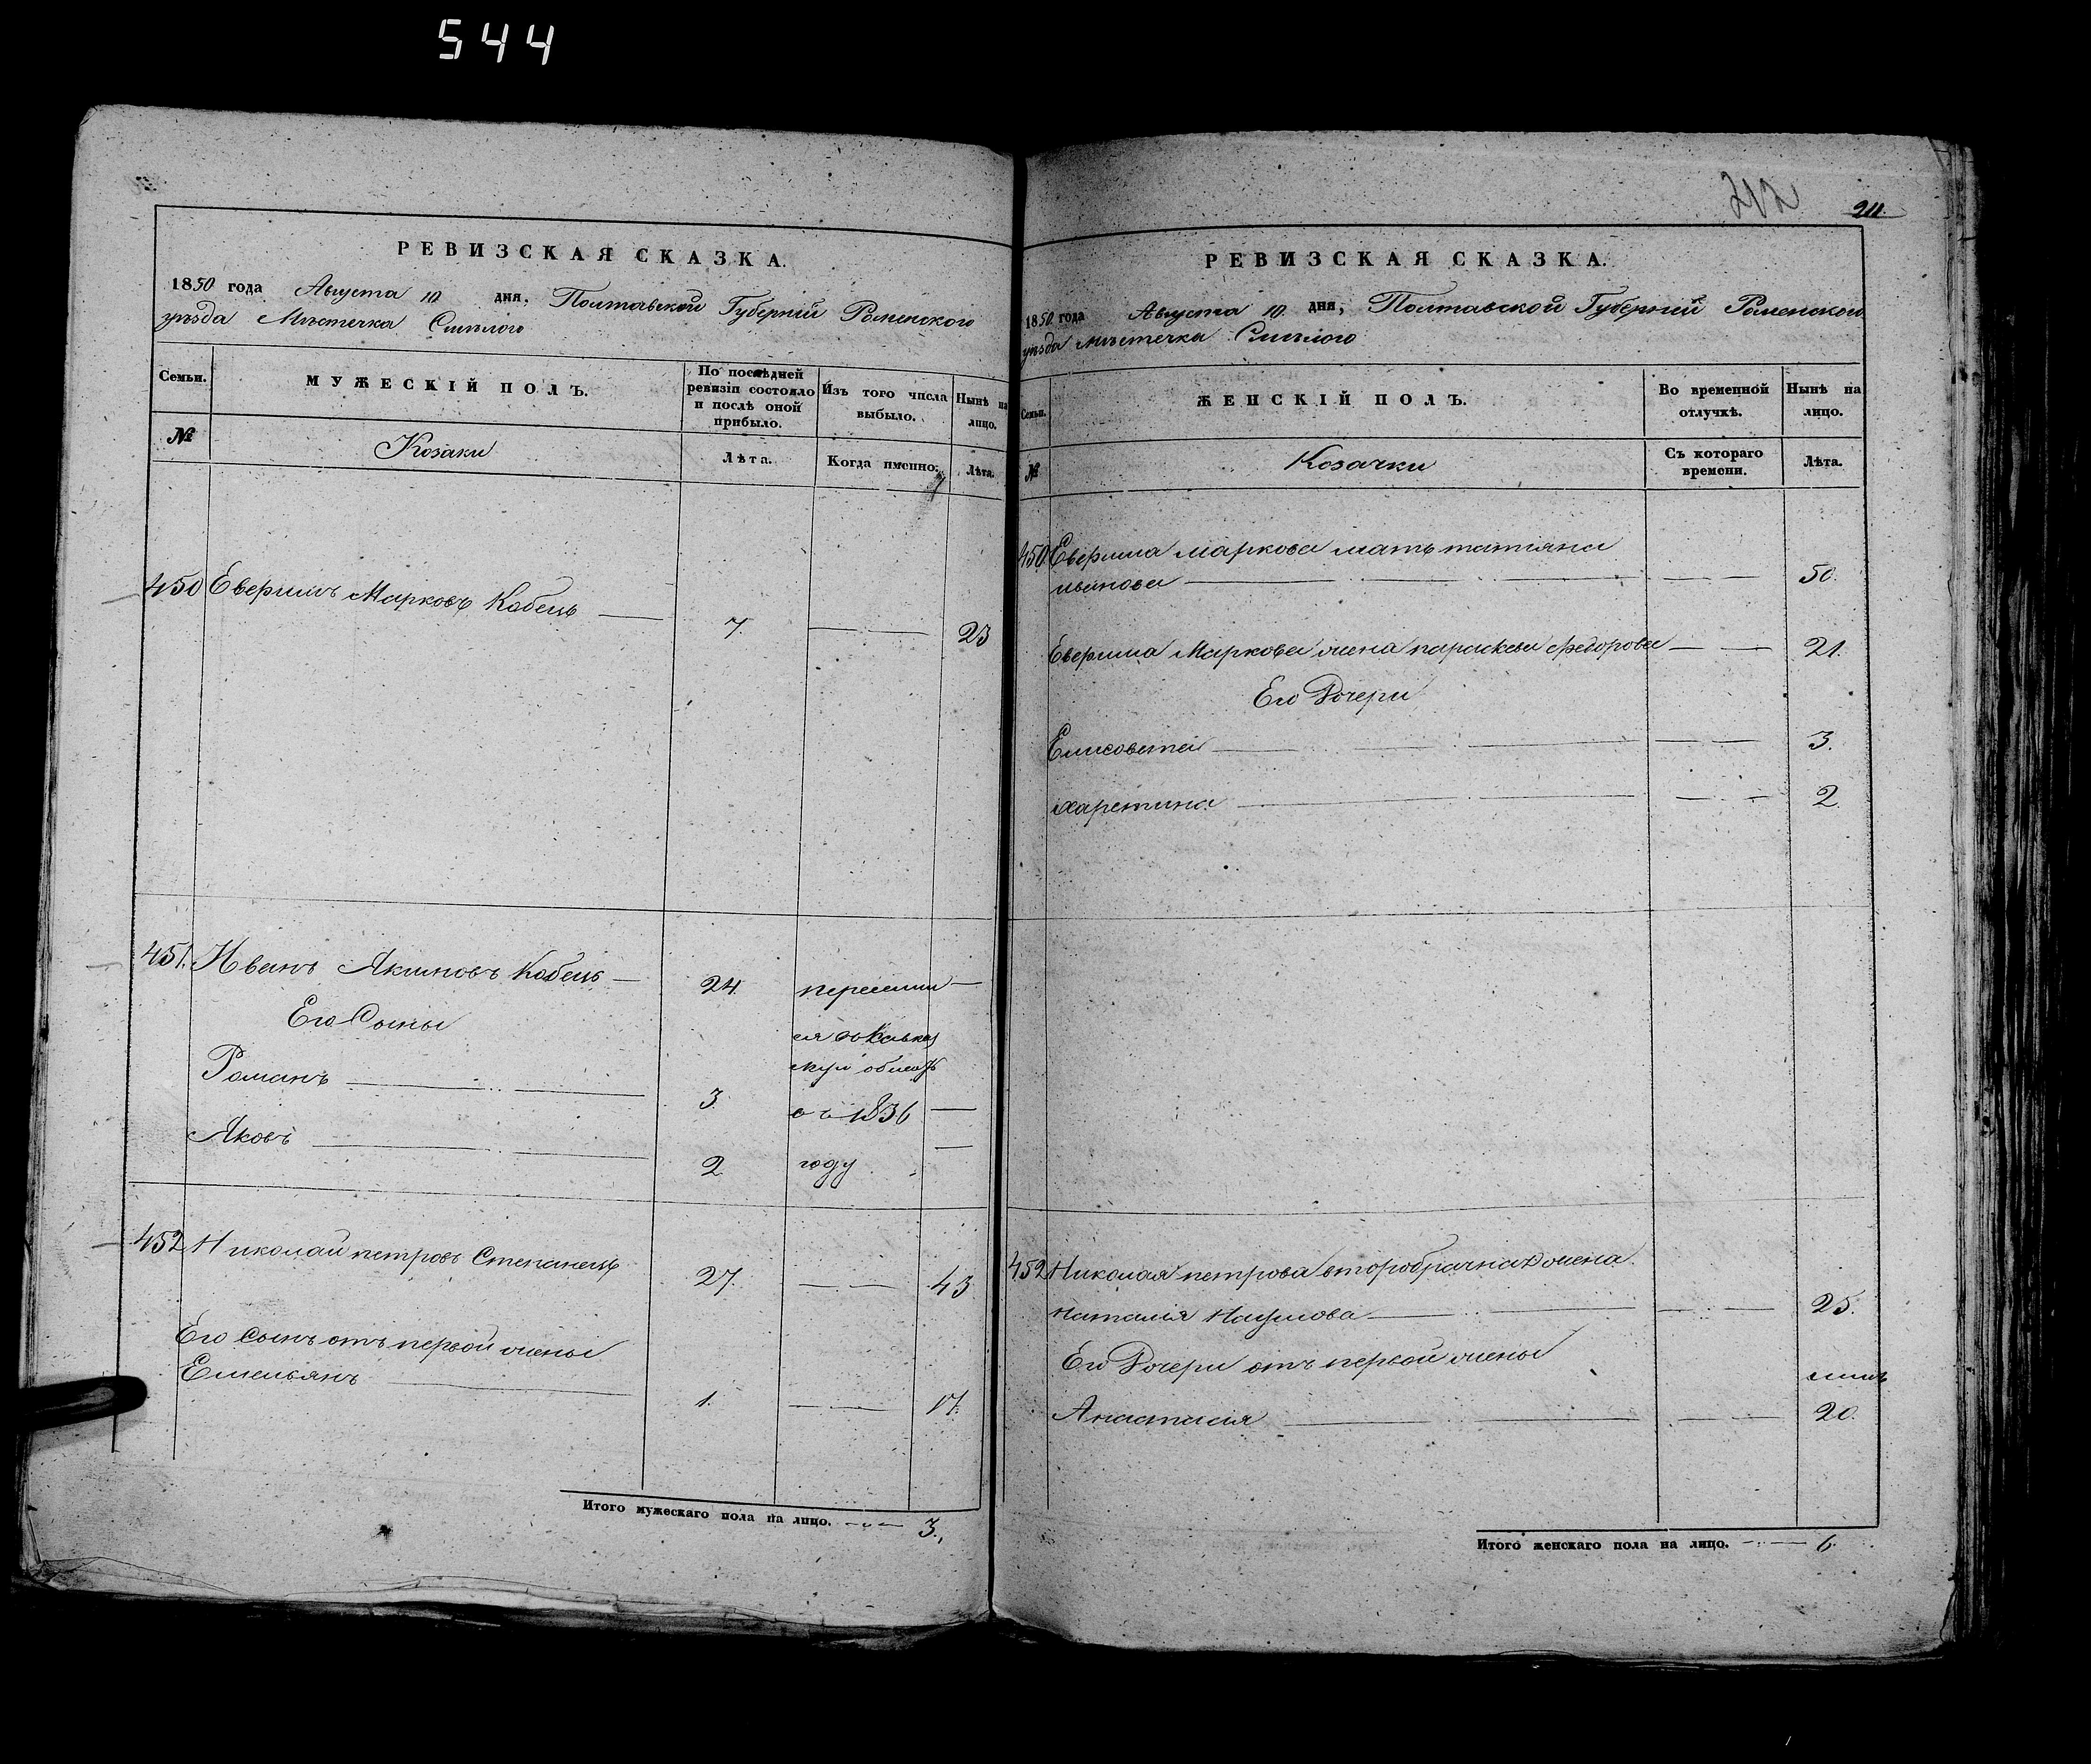 544
РЕВИЗСКАЯ СКАЗКА.
1850 года Августа 10 дня, Полтавской Губерніи Роменского
уѣзда Мѣстечка Смѣлого
Семьи.
МУЖЕСКІЙ ПОЛЪ.
По послѣдней ревизіи состояло и послѣ оной прибыло.
Изъ того числа выбыло.
Нынѣ на лицо.
№
Козаки
Лѣта.
Когда именно.
Лѣта.
450 Евфимъ Марковъ Кабецъ 7. 23
451. Иванъ Акимовъ Кабецъ 24. переселил
Его Сыны
ся въ Кавказ
скую область
Романъ 3. въ 1836
Яковъ 2 году
452 Николай петровъ Степанецъ 27. 43
Его Сынъ отъ первой жены
Емельянъ 1. 17.
Итого мужескаго пола на лицо. 3.
212
211.
РЕВИЗСКАЯ СКАЗКА.
1850 года Августа 10 дня, Полтавской Губерніи Роменского
уѣзда мѣстечка Смѣлого
Семьи.
ЖЕНСКІЙ ПОЛЪ.
Во временной отлучкѣ.
Нынѣ на лицо.
№
Козачки
Съ котораго времени.
Лѣта.
450. Евфима маркова мать татіяна
иванова 50.
Евфима Маркова жена параскева Федорова 21.
Его Дочери
Елисавета 3.
Харетина 2.
452 Николая петрова второбрачная жена
Наталія Наумова 25.
Его Дочери отъ первой жены
Анастасія 20.
Итого женскаго пола на лицо. 6.